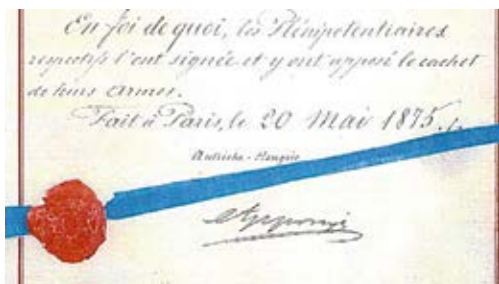 En foi de quoi, les Plénipotentiaires
respectifs l'ont signée et y ont apposé le cachet
de leurs armes.
Fait à Paris, le 20 Mai 1875.
Autriche-Hongrie
Apponyi